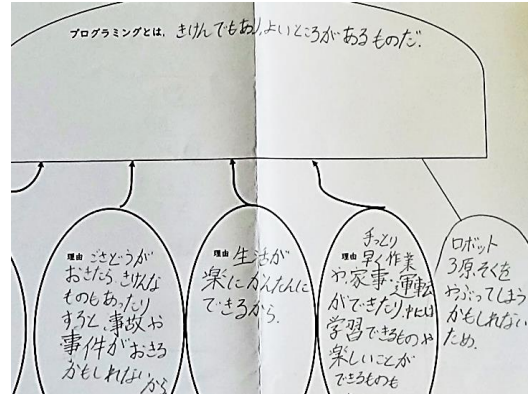 プログラミングとは, きけんでもあり,よいところがあるものだ.
理由 ごさどうが
おきたら,きけんな
ものもあったり
すると,事故や
事件がおきる
かもしれないから
理由 生活が
楽にかんたんに
できるから.
手っとり
理由 早く作業
や,家事,運転
ができたり,中には
学習できるものや
楽しいことが
できるものも
ロボット
3原そくを
やぶってしまう
かもしれない
ため.